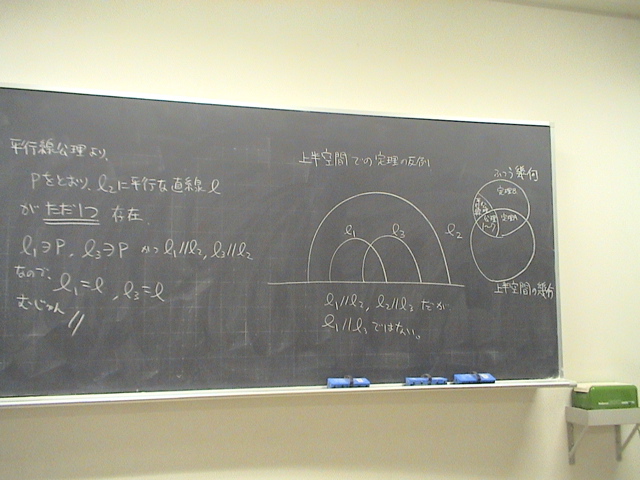 平行線公理より、
Pをとおり、ℓ2に平行な直線ℓ
が ただ1つ 存在.
ℓ1∋P, ℓ3∋P かつ ℓ1//ℓ2, ℓ3//ℓ2
なので、ℓ1=ℓ, ℓ3=ℓ
むじゅん //
上半空間での定理の反例
ℓ1
ℓ3
ℓ2
ℓ1//ℓ2, ℓ2//ℓ3 だが
ℓ1//ℓ3 ではない。
ふつう幾何
定理B
公理
定理A
上半空間の幾何